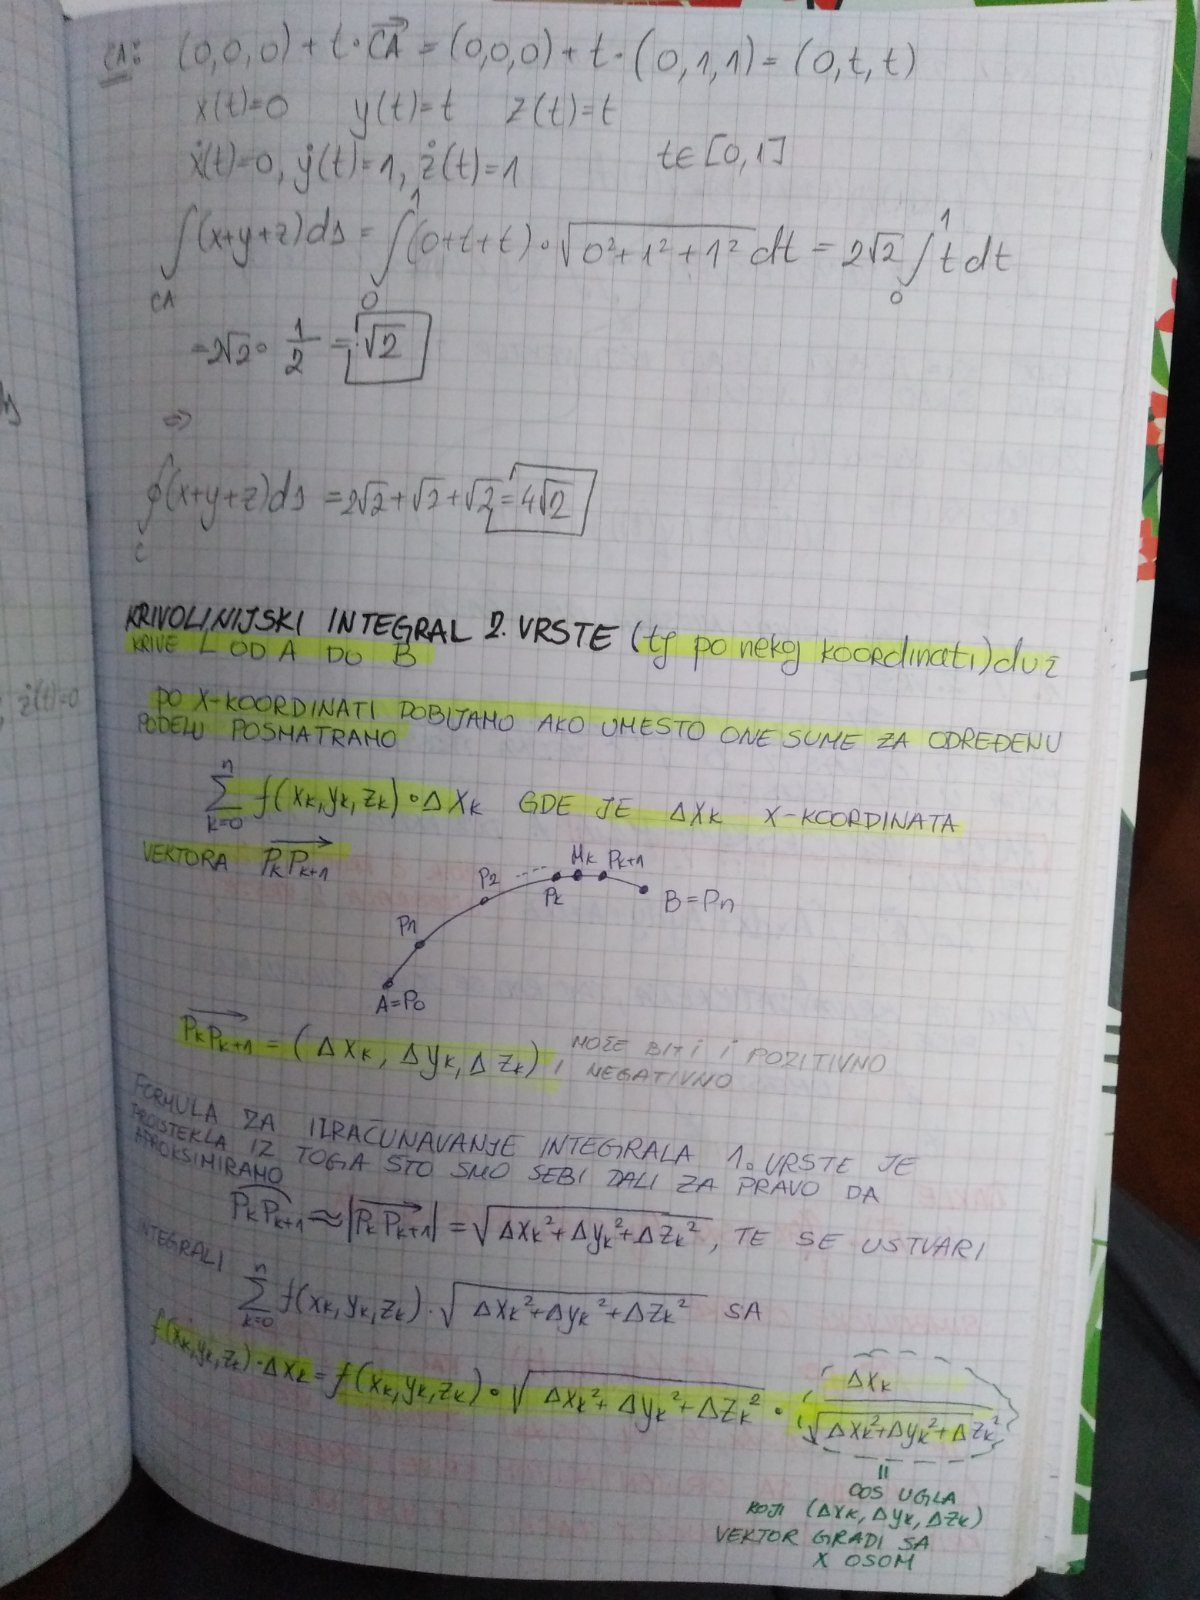 CA: (0,0,0) + t · CA = (0,0,0) + t · (0,1,1) = (0,t,t)
x(t)=0 y(t)=t z(t)=t
ẋ(t)=0, ẏ(t)=1, ż(t)=1 t∈[0,1]
∫(x+y+z)ds = ∫(0+t+t) · √0²+1²+1² dt = 2√2 ∫ t dt
CA 0 1 0 1
=2√2 · 1/2 = √2
⇒
∮(x+y+z)ds = 2√2+√2+√2 = 4√2
C
ż(t)=0
KRIVOLINIJSKI INTEGRAL 2. VRSTE (tj po nekoj koordinati) duž
KRIVE L OD A DO B
PO X-KOORDINATI DOBIJAMO AKO UMESTO ONE SUME ZA ODREĐENU
PODELU POSMATRAMO
n
∑ f(xk,yk,zk) · Δxk GDE JE Δxk X-KOORDINATA
k=0
VEKTORA PkPk+1
Mk Pk+1
P2 Pk B=Pn
P1
A=P0
PkPk+1 = (Δxk, Δyk, Δzk), MOŽE BITI I POZITIVNO
I NEGATIVNO
FORMULA ZA IZRACUNAVANJE INTEGRALA 1. VRSTE JE
PROISTEKLA IZ TOGA STO SMO SEBI DALI ZA PRAVO DA
APROKSIMIRAMO
PkPk+1 ≈ |PkPk+1| = √Δxk²+Δyk²+Δzk², TE SE USTVARI
INTEGRALI
n
∑ f(xk,yk,zk) · √Δxk²+Δyk²+Δzk² SA
k=0
f(xk,yk,zk)·Δxk = f(xk,yk,zk) · √Δxk²+Δyk²+Δzk² · Δxk / √Δxk²+Δyk²+Δzk²
=
COS UGLA
KOJI (Δxk, Δyk, Δzk)
VEKTOR GRADI SA
X OSOM